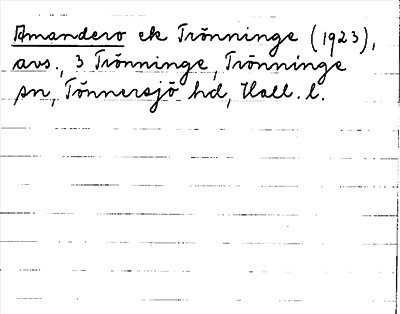 Amandero ek Trönninge (1923),
avs., 3 Trönninge, Trönninge
sn, Tönnersjö hd, Hall. l.